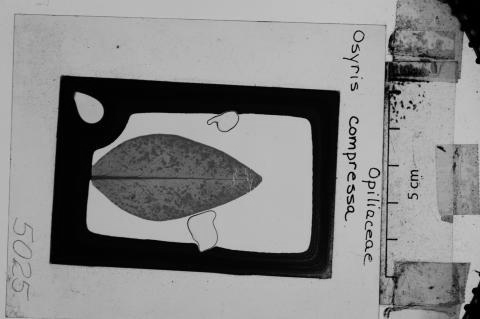 Opiliaceae
Osyris compressa
5 cm
5025